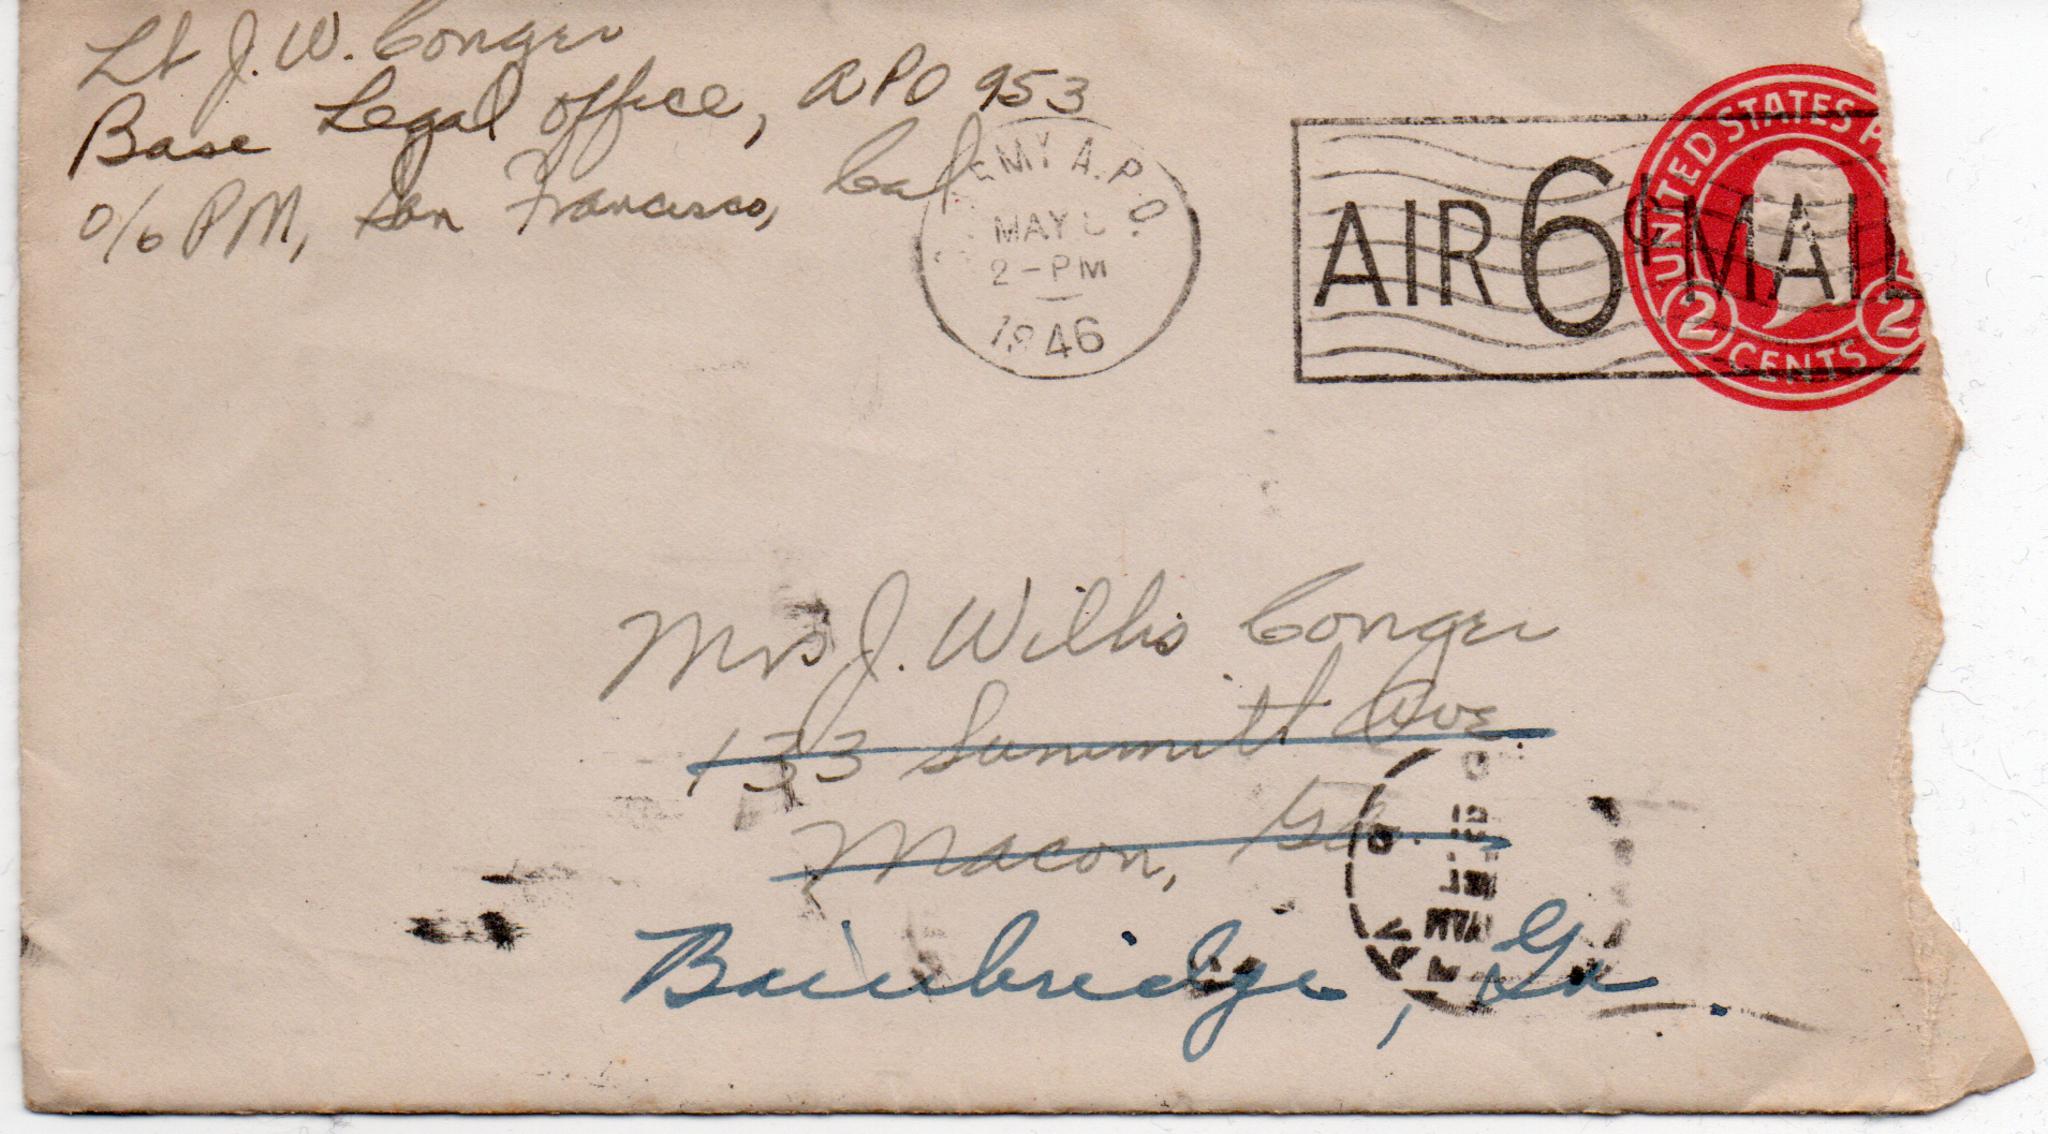 Lt J. W. Conger
Base Legal Office, APO 953
o/o PM, San Francisco, Cal
MY A.P.O.
MAY
2-PM
1946
AIR 6¢ MAIL
UNITED STATES
2 CENTS 2
Mrs J. Willis Conger
133 Summitt Ave
Macon, Ga.
Bainbridge, Ga.